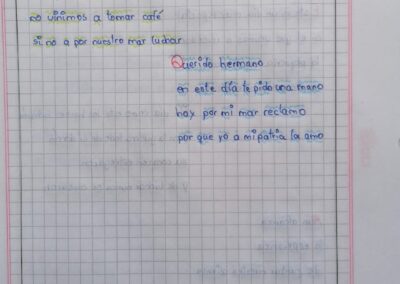 no vinimos a tomar café
si no a por nuestro mar luchar
Querido hermano
en este día te pido una mano
hoy por mi mar reclamo
por que yo a mi patria la amo